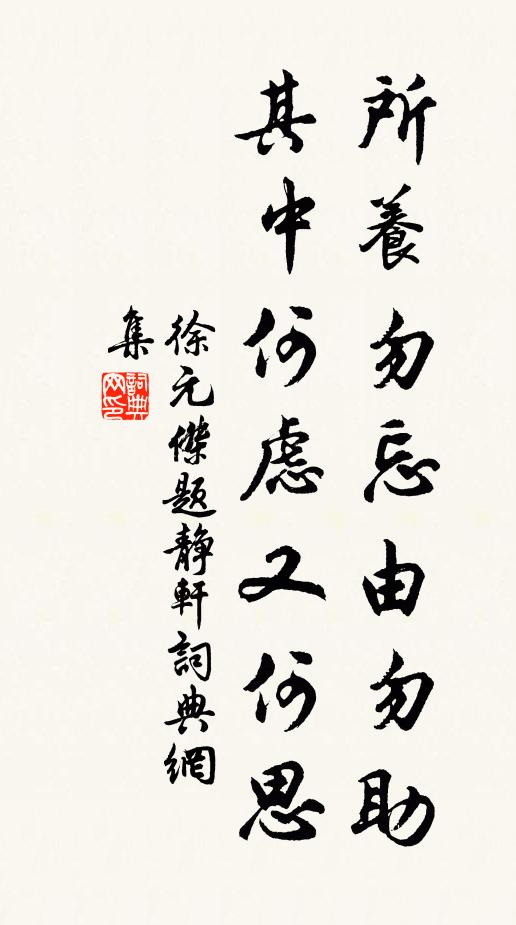 所養勿忘由勿助
其中何慮又何思
徐元傑題靜軒詞典網
集
詞典
网印